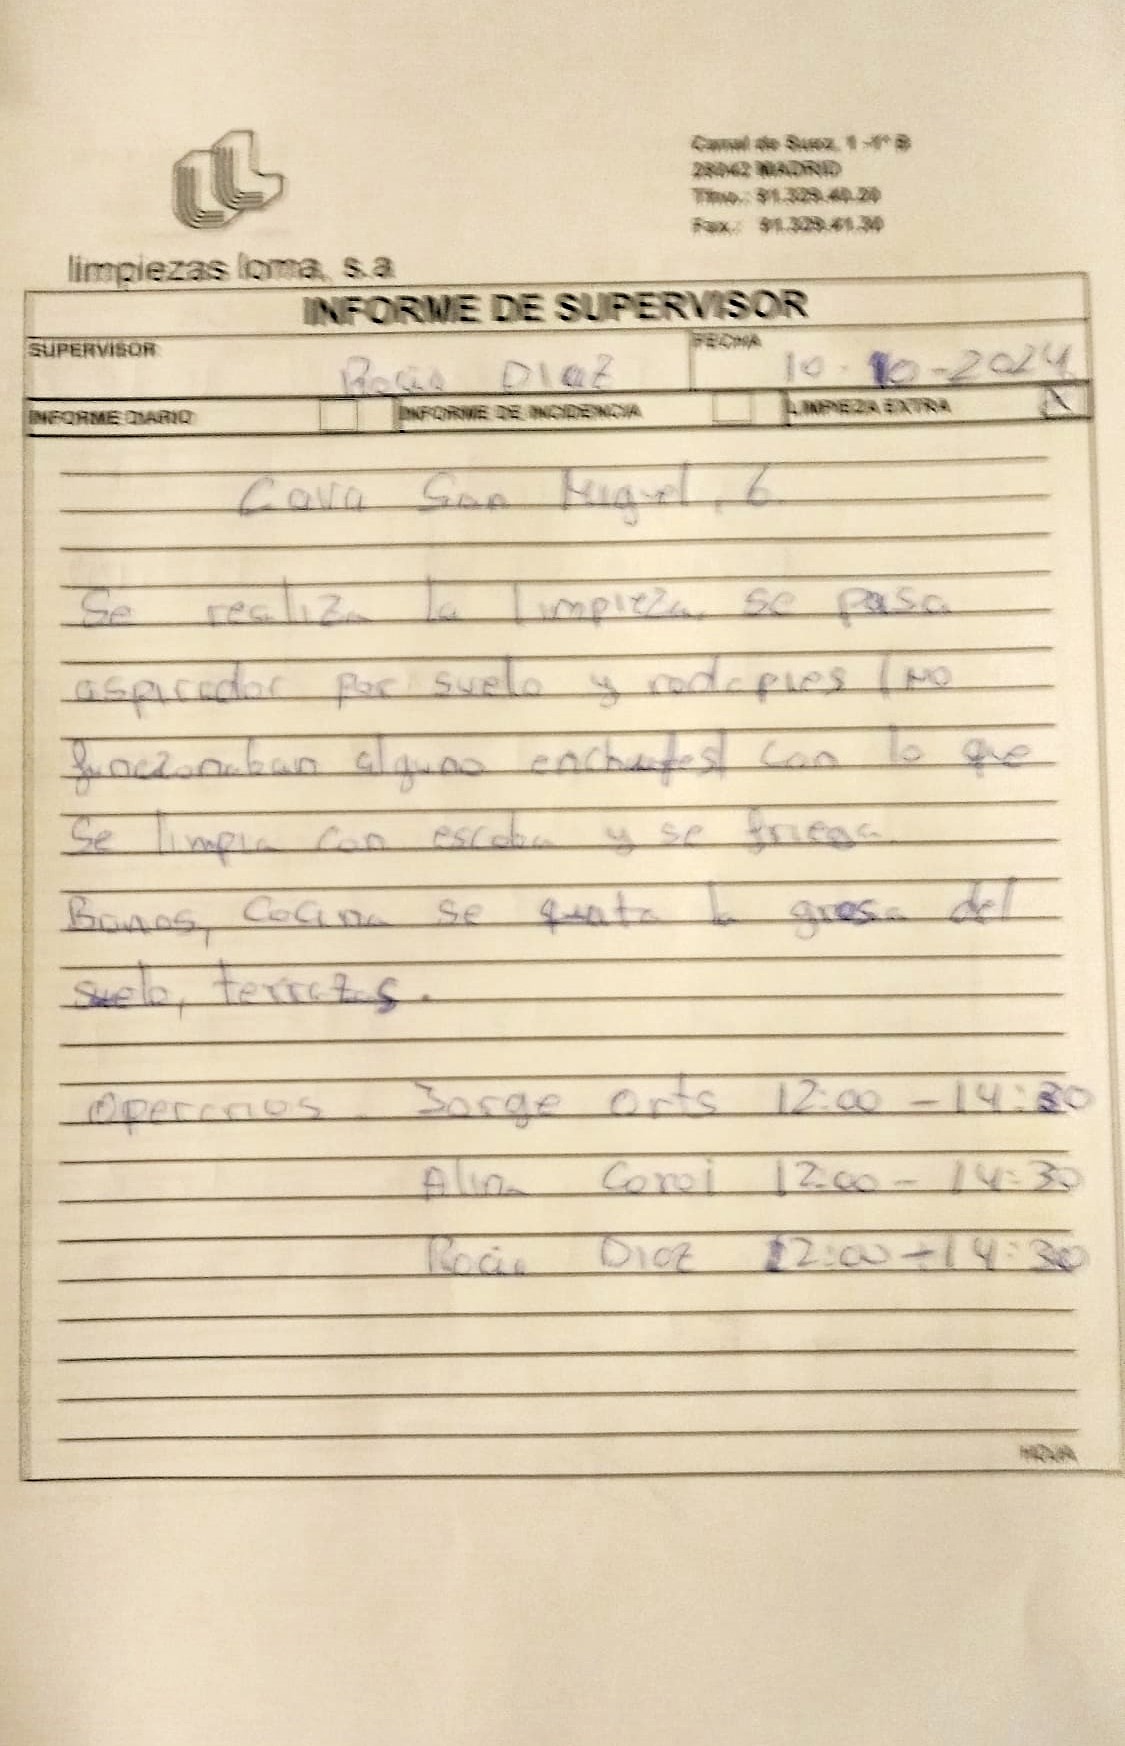 Canal de Suez, 1 -1º B
28042 MADRID
Tfno.: 91.329.40.20
Fax.: 91.329.41.30
LL
limpiezas loma, s.a
INFORME DE SUPERVISOR
SUPERVISOR Rocio Diaz FECHA 10-10-2024
INFORME DIARIO INFORME DE INCIDENCIA LIMPIEZA EXTRA
Cava San Miguel, 6.
Se realiza la limpieza, se pasa
aspirador por suelo y rodapies (no
funcionaban alguno enchufes) con lo que
se limpia con escoba y se friega.
Banos, Cocina se quita la grasa del
suelo, terrazas.
Operarios - Jorge Orts 12:00 - 14:30
Alina Coroi 12:00 - 14:30
Rocio Diaz 12:00 - 14:30